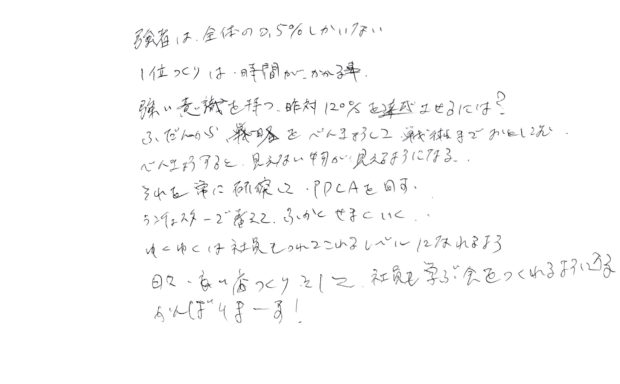 強者は、全体の0.5%しかいない
1位づくりは、時間が、かかる事.
強い意識を持つ、昨対120%を達成させるには?
ふだんから、戦略をべんきょうして、戦術までおとし込.
べんきょうすると、見えない物が見えるようになる.
それを常に研究して、PDCAを回す.
ランチェスターで考えて、ふかくせまくいく.
ゆくゆくは社員もつれてこれるレベルになれるよう
日々、良い店づくりをして、社員も学ぶ会をつくれるようにする
がんばりまーす!